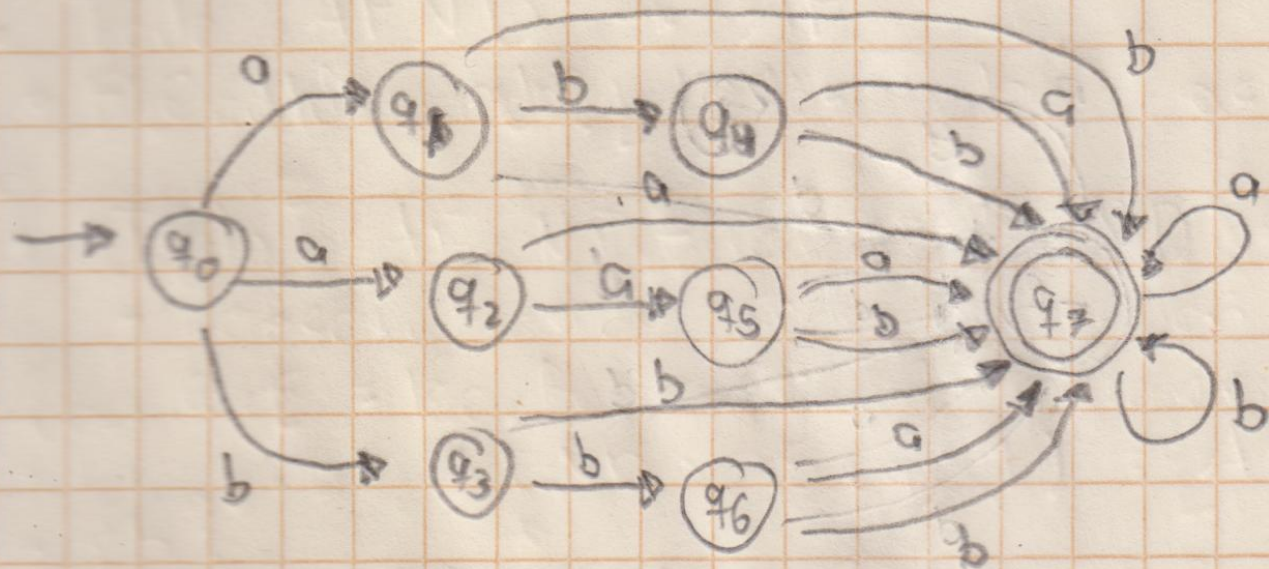 a
b
q1
b
q4
a
b
a
a
q0
a
q2
a
q5
a
b
q7
b
b
b
q3
b
q6
a
b